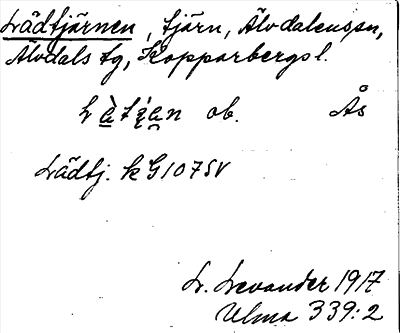 Lädtjärnen, tjärn, Älvdalens sn,
Älvdals tg, Kopparbergs l.
ob. Ås
Lädtj. k G107SV
L. Levander 1917
Ulma 339:2